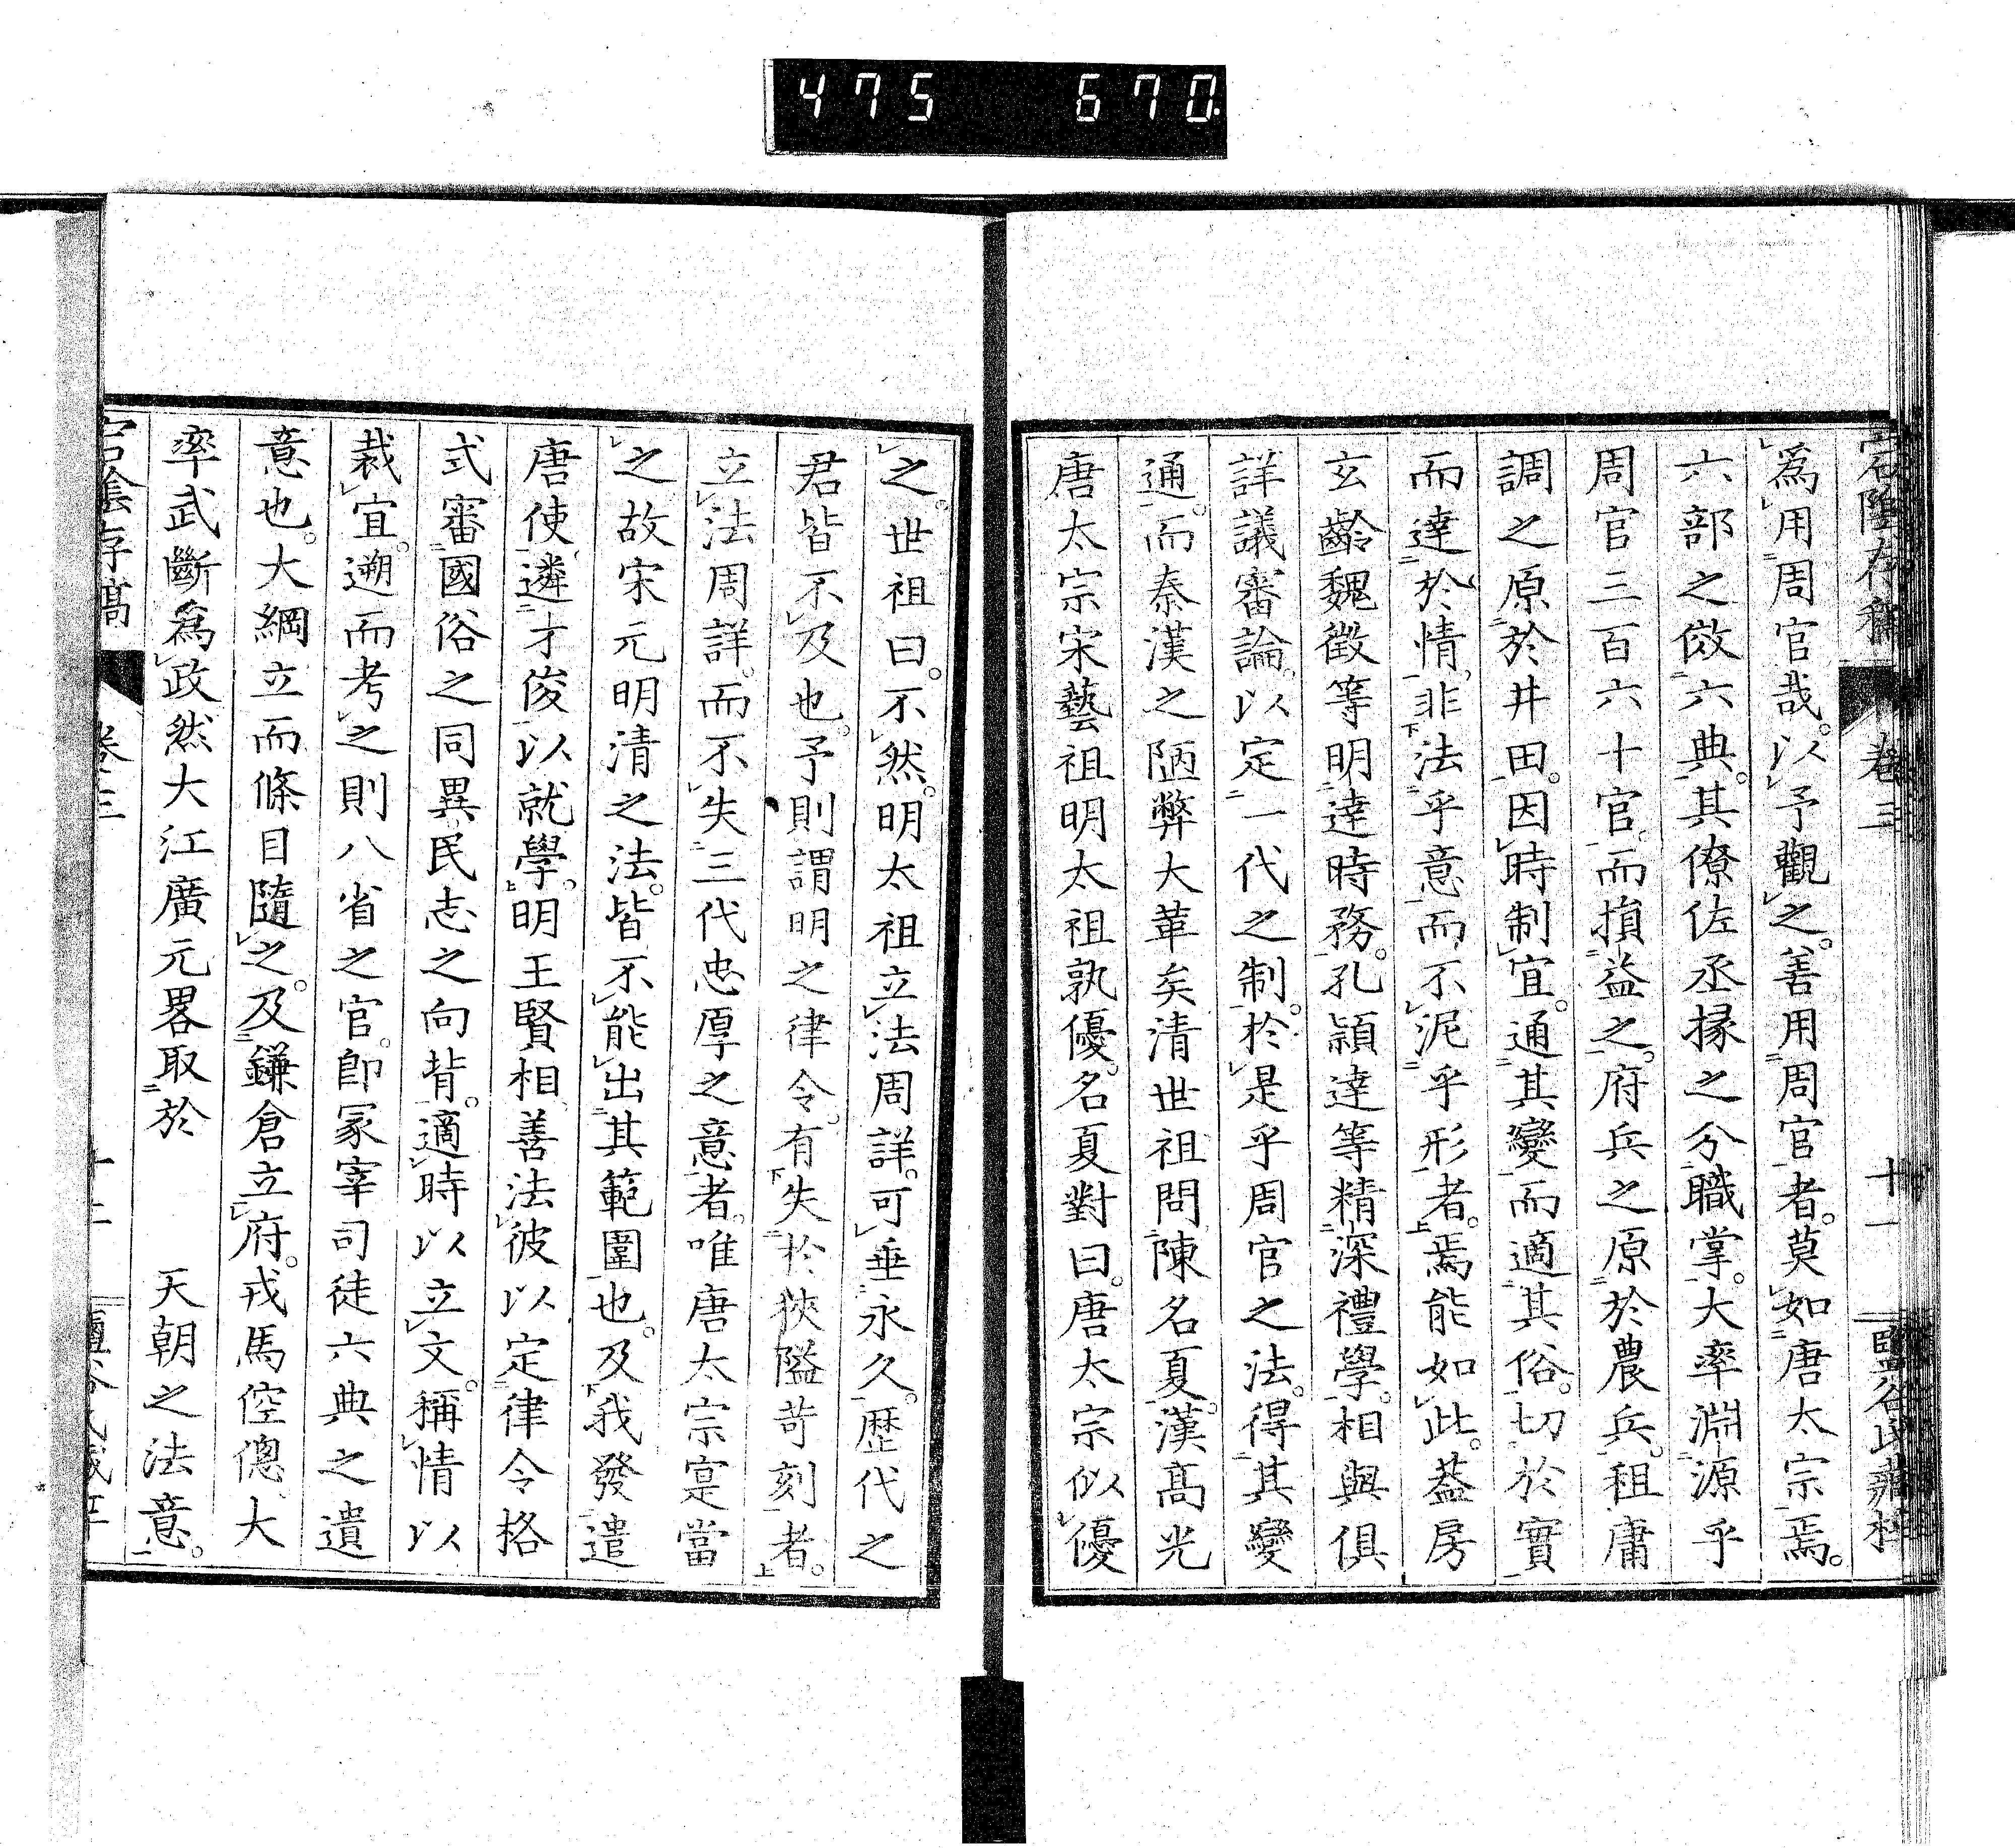 475 670
宕陰存稿 卷三 十一
爲用周官哉。以予觀之。善用周官者。莫如唐太宗焉。
六部之倣六典。其僚佐丞掾之分職掌。大率淵源乎
周官三百六十官。而損益之。府兵之原於農兵。租庸
調之原於井田。因時制宜。通其變而適其俗。切於實
而達於情。非法乎意而不泥乎形者。焉能如此。葢房
玄齡魏徵等明達時務。孔頴達等精深禮學。相與俱
詳議審論。以定一代之制。於是乎周官之法。得其變
通。而秦漢之陋弊大革矣清世祖問陳名夏。漢髙光
唐太宗宋藝祖明太祖孰優。名夏對曰。唐太宗似優
之。世祖曰。不然。明太祖立法周詳。可垂永久。歴代之
君皆不及也。予則謂明之律令。有失於狹隘苛刻者。
立法周詳。而不失三代忠厚之意者。唯唐太宗寔當
之故宋元明清之法。皆不能出其範圍也。及我發遣
唐使。遴才俊以就學。明王賢相善法。彼以定律令格
式審國俗之同異民志之向背。適時以立文。稱情以
裁宜。遡而考之則八省之官。卽冢宰司徒六典之遺
意也。大綱立而條目隨之。及鎌倉立府。戎馬倥傯大
率武斷爲政然大江廣元畧取於 天朝之法意。
宕陰存稿 卷三 十二